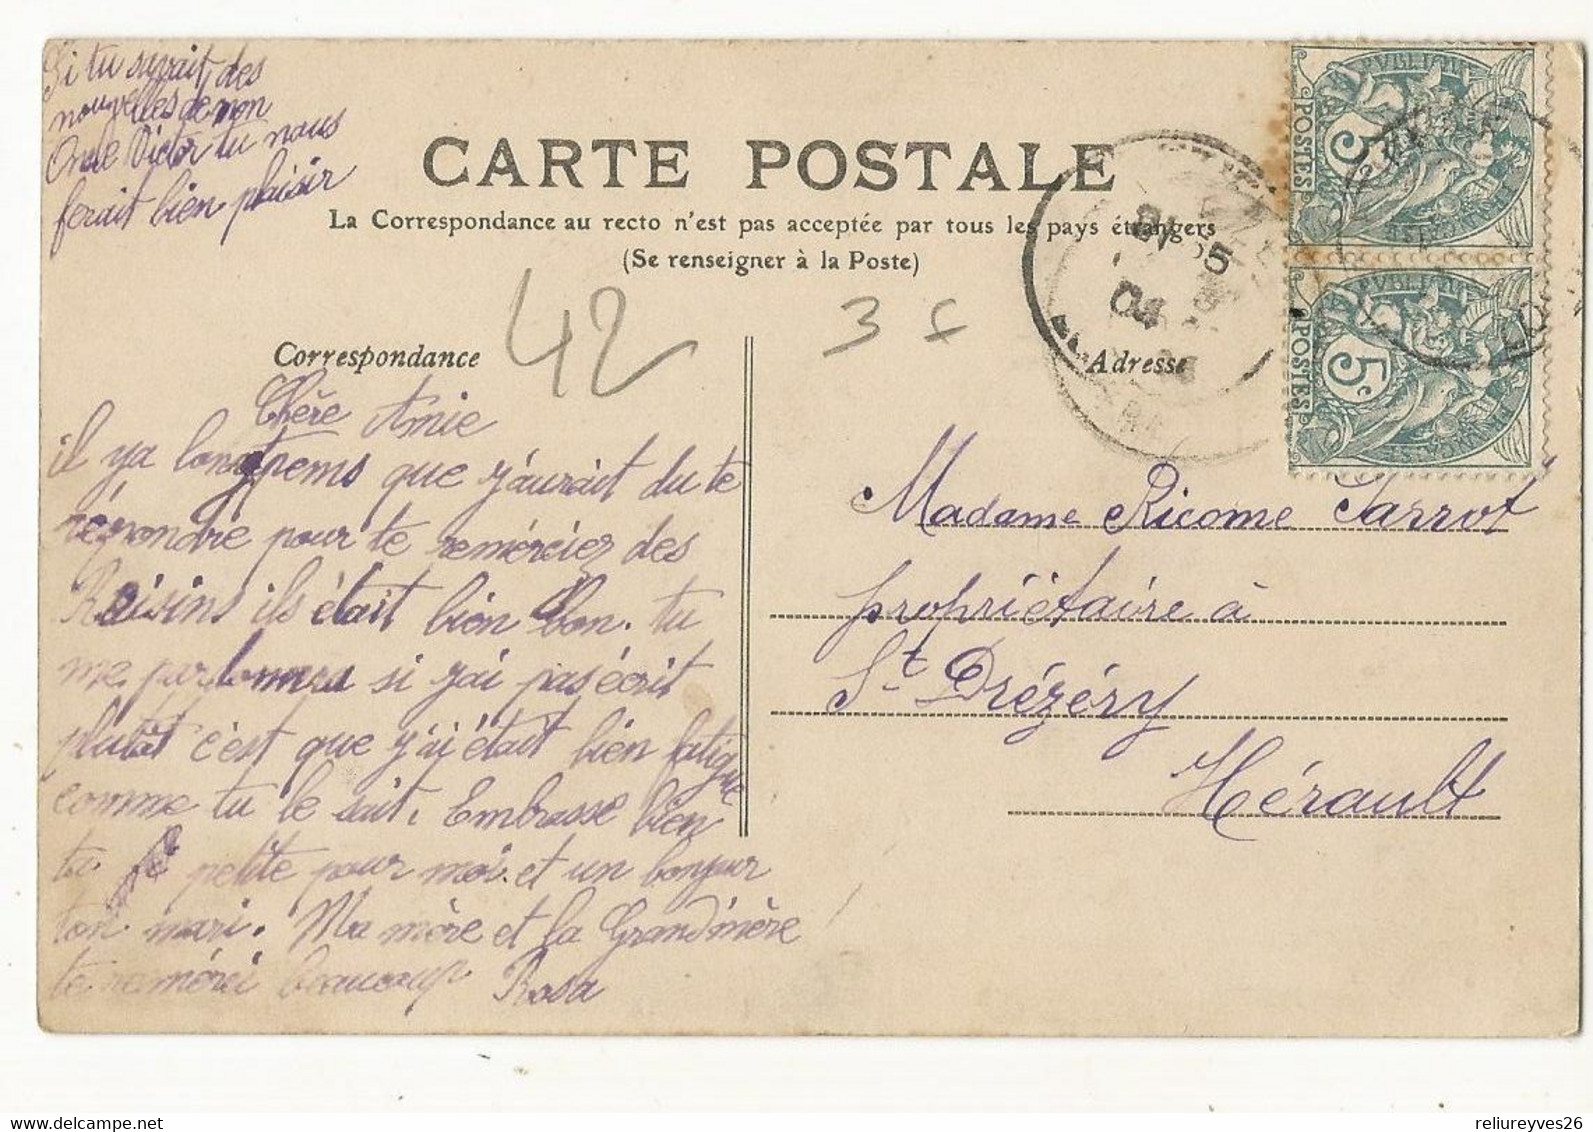 Si tu savait, des
nouvelles de mon
Oncle Victor tu nous
ferait bien plaisir
CARTE POSTALE
La Correspondance au recto n'est pas acceptée par tous les pays étrangers
(Se renseigner à la Poste)
42
3 f
Correspondance
Adresse
POSTES
5c
POSTES
5c
04
Chère Amie
il ya longtpems que j'aurait du te
répondre pour te remércièz des
Raisins ils était bien bon. tu
me pardonnra si j'ai pas écrit
plutôt c'est que j'ai était bien fatigue
comme tu le sait. Embrasse bien
ta petite pour moi. et un bonjour
ton mari. Ma mère et la Grand'mère
te remérci beaucoup
Rosa
Madame Ricome Sarrot
propriétaire à
St Drézéry
Hérault
reliureyves26